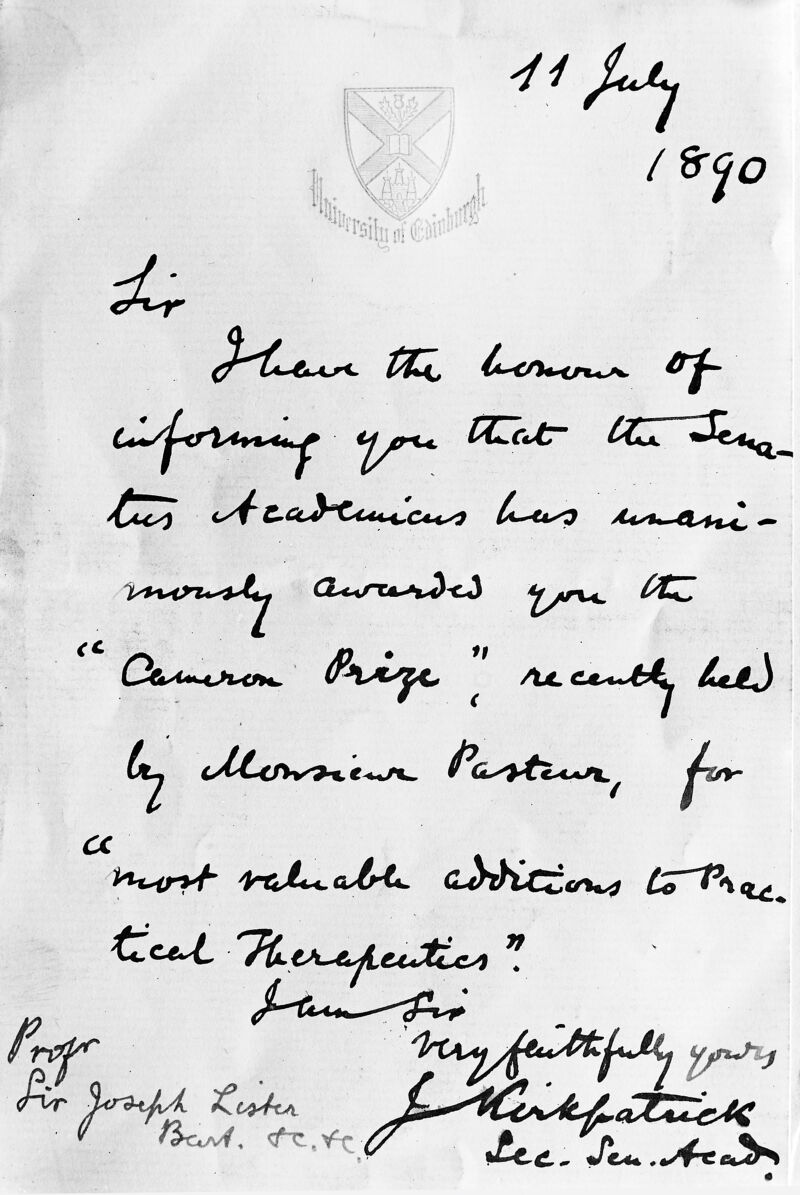 11 July
1890
University of Edinburgh
Sir
I have the honour of
informing you that the Sena-
tus Academicus has unani-
mously awarded you the
"Cameron Prize", recently held
by Monsieur Pasteur, for
"most valuable additions to Prac-
tical Therapeutics".
I am Sir
very faithfully yours
J Kirkpatrick
Sec. Sen. Acad.
Profr
Sir Joseph Lister
Bart. &c. &c.